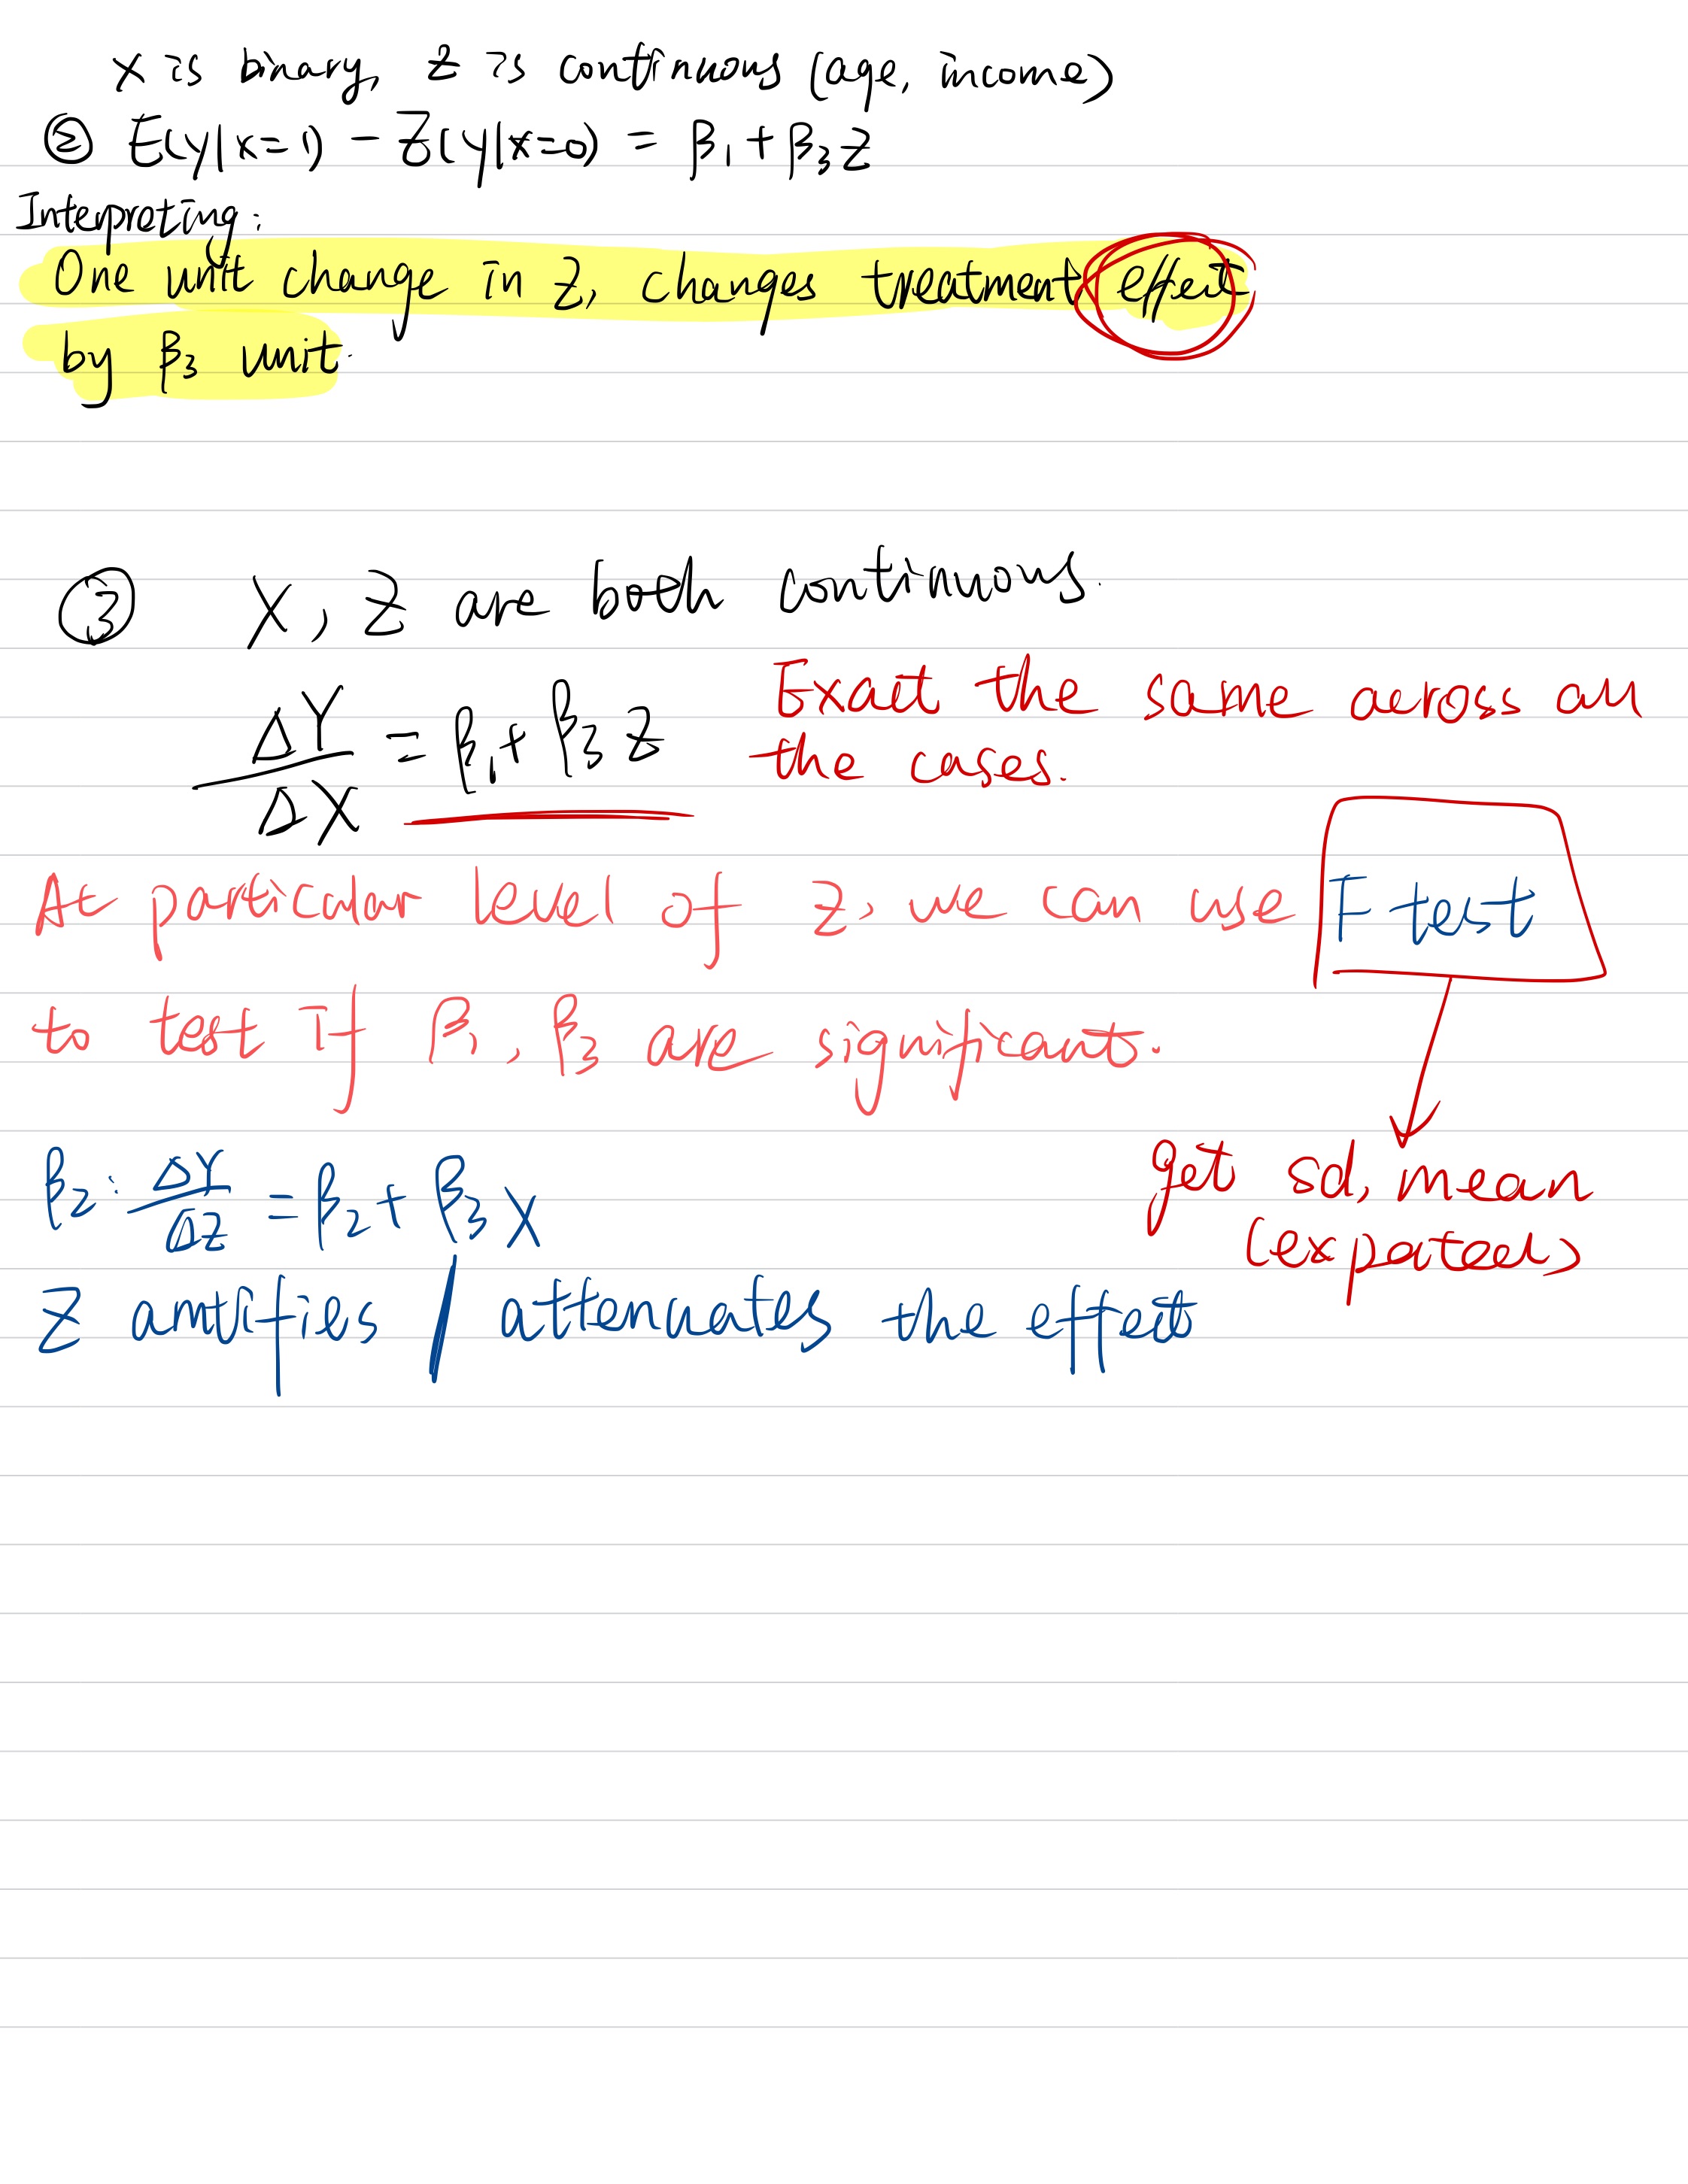 X is binary, Z is continuous (age, income)
② E(y|x=1) - Z(y|x=0) = β₁ + β₃Z
Interpreting:
One unit change in Z, changes treatment effect
by β₃ unit.
③ X, Z are both continuous.
ΔY/ΔX = β₁ + β₃ Z
Exact the same across all
the cases.
At particular level of Z, we can use F test
to test if β₁, β₃ are significant.
get sd, mean
β₂: ΔY/ΔZ = β₂ + β₃ X
Z / attenuates the effect